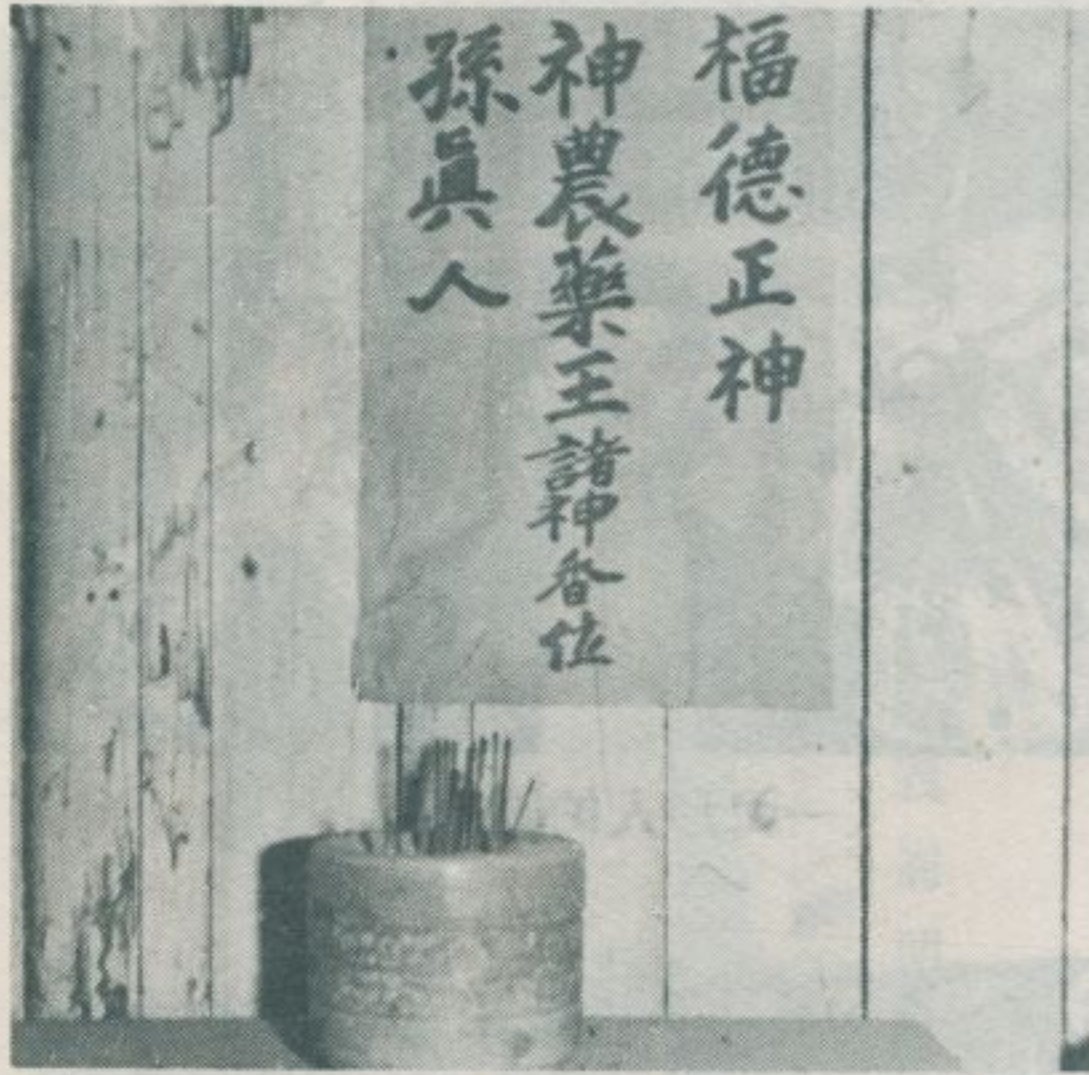 福德正神
神農藥王諸神香位
孫眞人